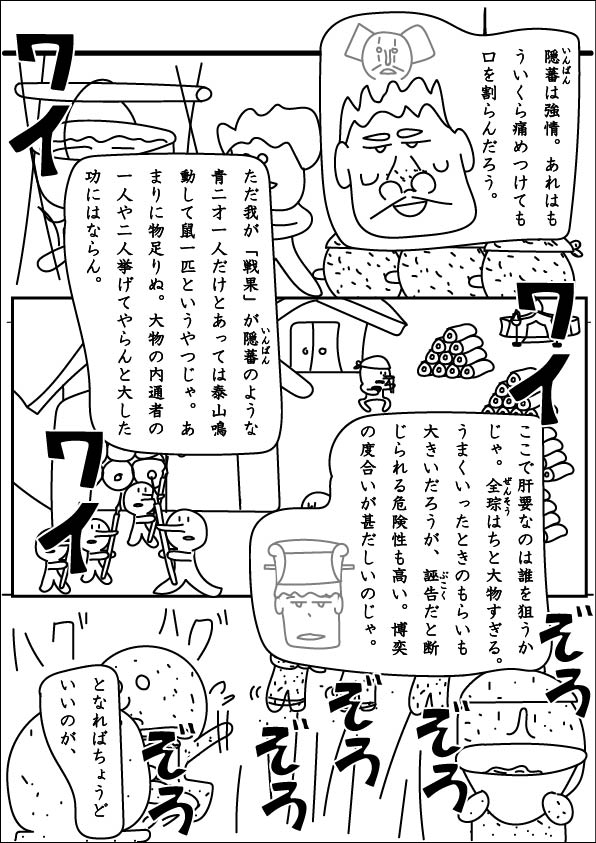 隠蕃は強情。あれはも
ういくら痛めつけても
口を割らんだろう。
いんばん
ワイ
ただ我が「戦果」が隠蕃のような
青二才一人だけとあっては泰山鳴
動して鼠一匹というやつじゃ。あ
まりに物足りぬ。大物の内通者の
一人や二人挙げてやらんと大した
功にはならん。
いんばん
ワイ
ワイ
ここで肝要なのは誰を狙うか
じゃ。全琮はちと大物すぎる。
うまくいったときのもらいも
大きいだろうが、誣告だと断
じられる危険性も高い。博奕
の度合いが甚だしいのじゃ。
ぜんそう
ぶこく
ぞろ
ぞろ
ぞろ
ぞろ
ぞろ
グワッ
グワッ
となればちょうど
いいのが、